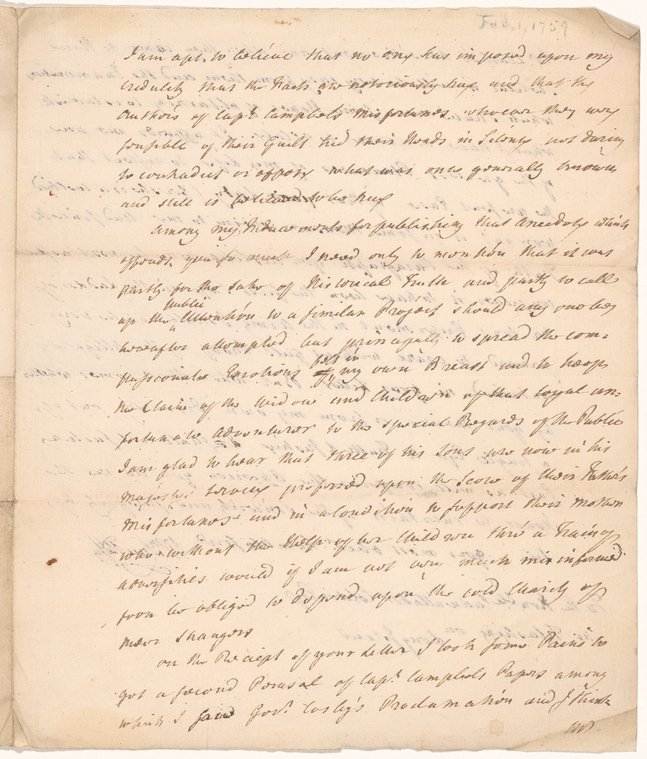 Feb. 1, 1759
I am apt to believe that no one has imposed upon my
credulity that the Facts are notoriously true and that the
Authors of Capt Campbels Misfortunes whoever they were
sensible of their Guilt hid their Heads in Silence not daring
to contradict or oppose what was once generally known
and still is believed to be true
Among my Inducements for publishing that Anecdote which
offends you so much I need only to mention that it was
partly for the sake of Historical Truth and partly to call
Public
up the Attention to a similar Project should any one be
hereafter attempted but principally to spread the com-
passionate Emotions felt in my own Breast and to keep
the Claim of the Widow and Children of that loyal un-
fortunate Adventurer to the special Regards of the Public
I am glad to hear that three of his Sons are now in his
Majestys Service preferred upon the Score of their Father's
Misfortunes and in a Condition to support their Mother
who without the Help of her Children thro' a Train of
adversities would if I am not very much misinformed
soon be obliged to depend upon the cold Charity of
mere Strangers
On the Receipt of your Letter I took some Pains to
get a second Perusal of Capt Campbels Papers among
which I found Govr Cosby's Proclamation and I think